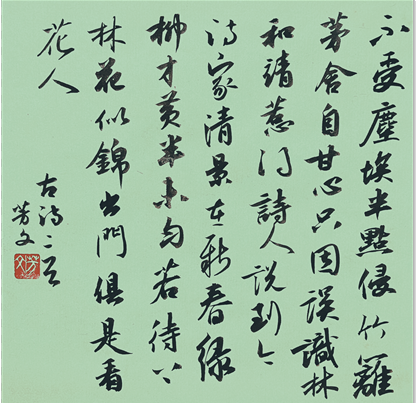 不受塵埃半點侵竹籬
茅舍自甘心只因誤識林
和靖惹得詩人說到今
诗家清景在新春綠
柳才黃半未勻若待上
林花似錦出門俱是看
花人
古诗二首
芳文